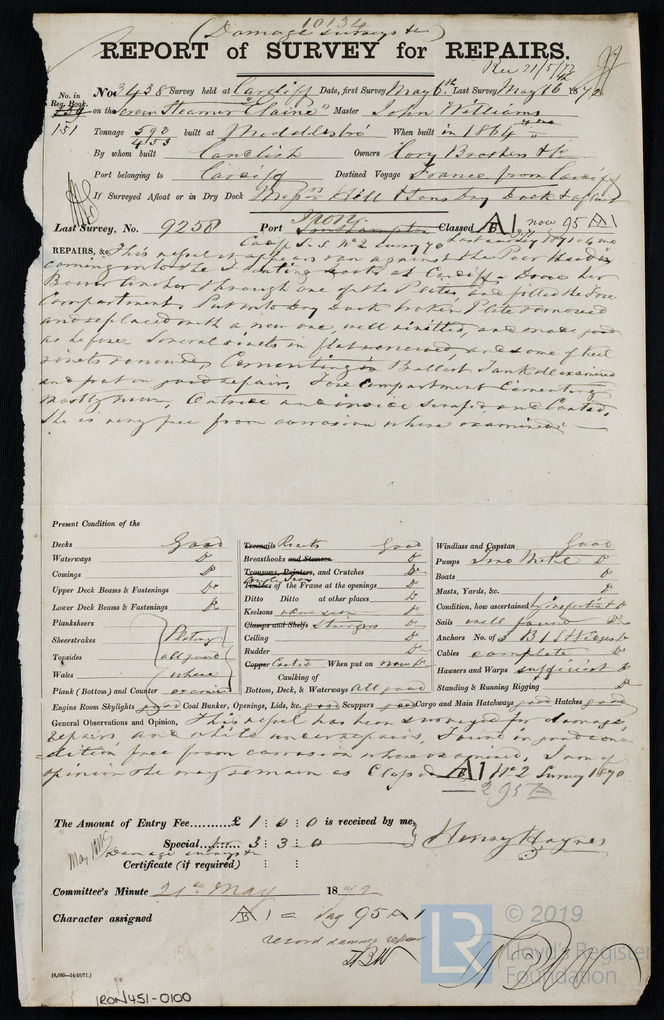 10134
(Damage surveys &c)
REPORT of SURVEY for REPAIRS.
Rec 21/5/72
No. in Reg. Book. No. 3438 Survey held at Cardiff Date, first Survey May 6th Last Survey May 16 1872
151 on the Screw Steamer "Elaine" Master John Williams
Tonnage 592 453 built at Middlesbro When built in 1864
By whom built Candlish Owners Cory Brothers & Co
Port belonging to Cardiff Destined Voyage France from Cardiff
If Surveyed Afloat or in Dry Dock Messrs Hill & Sons Dry Dock & afloat
Last Survey, No. 9258 Port Southampton Classed A 1 now 95 A 1
Iron
REPAIRS, &c. This vessel it appears ran against the Pier Head in
coming into the docks at Cardiff & Drove her
Bower Anchor through one of the Plates and filled the Fore
Compartment. Put into Dry Dock broken Plate removed
and replaced with a new one, well rivetted, and made good
as before. Several rivets in flat renewed, and some of keel
rivets renewed, Cementing in Ballast Tank all examined
and put in good repair, Fore Compartment Cementing
mostly new, Outside and inside scraped and Coated,
She is very free from corrosion where examined
Present Condition of the
Decks Good
Waterways Do
Comings Do
Upper Deck Beams & Fastenings Do
Lower Deck Beams & Fastenings Do
Planksheers
Sheerstrakes Plating
Topsides all good
Wales where
Plank (Bottom) and Counter examined
Treenails Rivets Good
Breasthooks and Stemson Do
Transoms, Pointers, and Crutches Do
Timbers of the Frame at the openings Do
Ditto Ditto at other places Do
Keelsons Do
Clamps and Shelfs Stringers Do
Ceiling Do
Rudder Do
Copper Coated When put on now Do
Caulking of
Bottom, Deck, & Waterways All good
Windlass and Capstan Good
Pumps Do
Boats Do
Masts, Yards, &c. Do
Condition, how ascertained by inspection
Sails well found Do
Anchors No. of 3 B 1 S
Cables complete Do
Hawsers and Warps sufficient Do
Standing & Running Rigging Do
Engine Room Skylights good Coal Bunker, Openings, Lids, &c. good Scuppers good Cargo and Main Hatchways good Hatches good
General Observations and Opinion, This vessel has been surveyed for damage
repairs and while under repairs, I found in good con-
dition free from corrosion where examined. I am of
opinion She may remain as Classed A 1 No 2 Survey 1870
The Amount of Entry Fee.......... £ 1 : 0 : 0 is received by me,
Special....... 3 : 3 : 0 Henry Haynes
Damage surveys &c
Certificate (if required) : :
Committee's Minute 21st May 1872
Character assigned A 1 = 95 A 1
record damage repair
[6,000—14/10/71.]
IRON451-0100
LR
© 2019
Lloyd's Register
Foundation